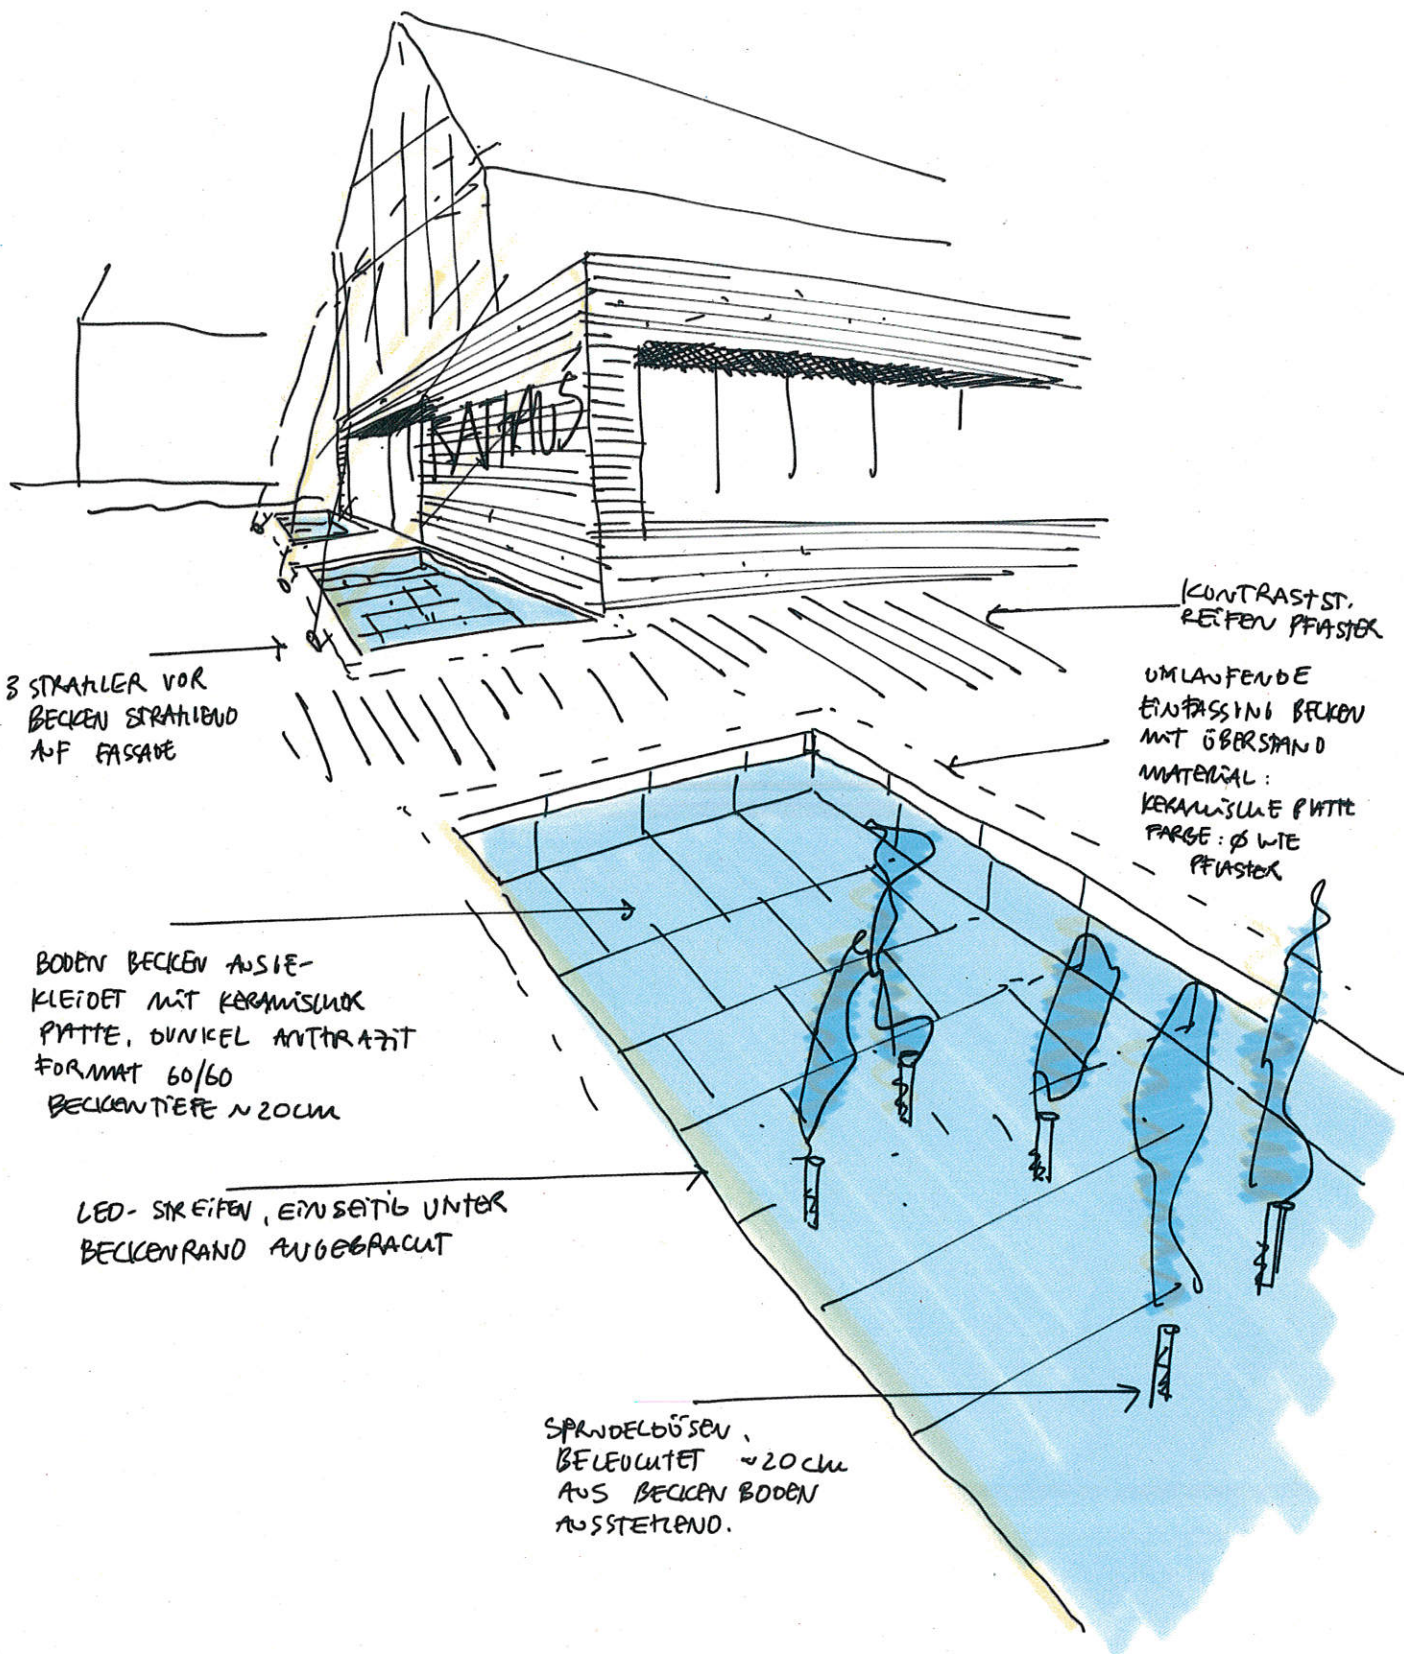 RATHAUS
KONTRASTST.
REIFEN PFLASTER
3 STRAHLER VOR
BECKEN STRAHLEND
AUF FASSADE
UMLAUFENDE
EINFASSUNG BECKEN
MIT ÜBERSTAND
MATERIAL:
KERAMISCHE PLATTE
FARBE: Ø WIE
PFLASTER
BODEN BECKEN AUSGE-
KLEIDET MIT KERAMISCHER
PLATTE, DUNKEL ANTHRAZIT
FORMAT 60/60
BECKENTIEFE ~ 20cm
LED- STREIFEN, EINSEITIG UNTER
BECKENRAND ANGEBRACHT
SPRUDELDÜSEN,
BELEUCHTET ~20 cm
AUS BECKEN BODEN
AUSSTEHEND.